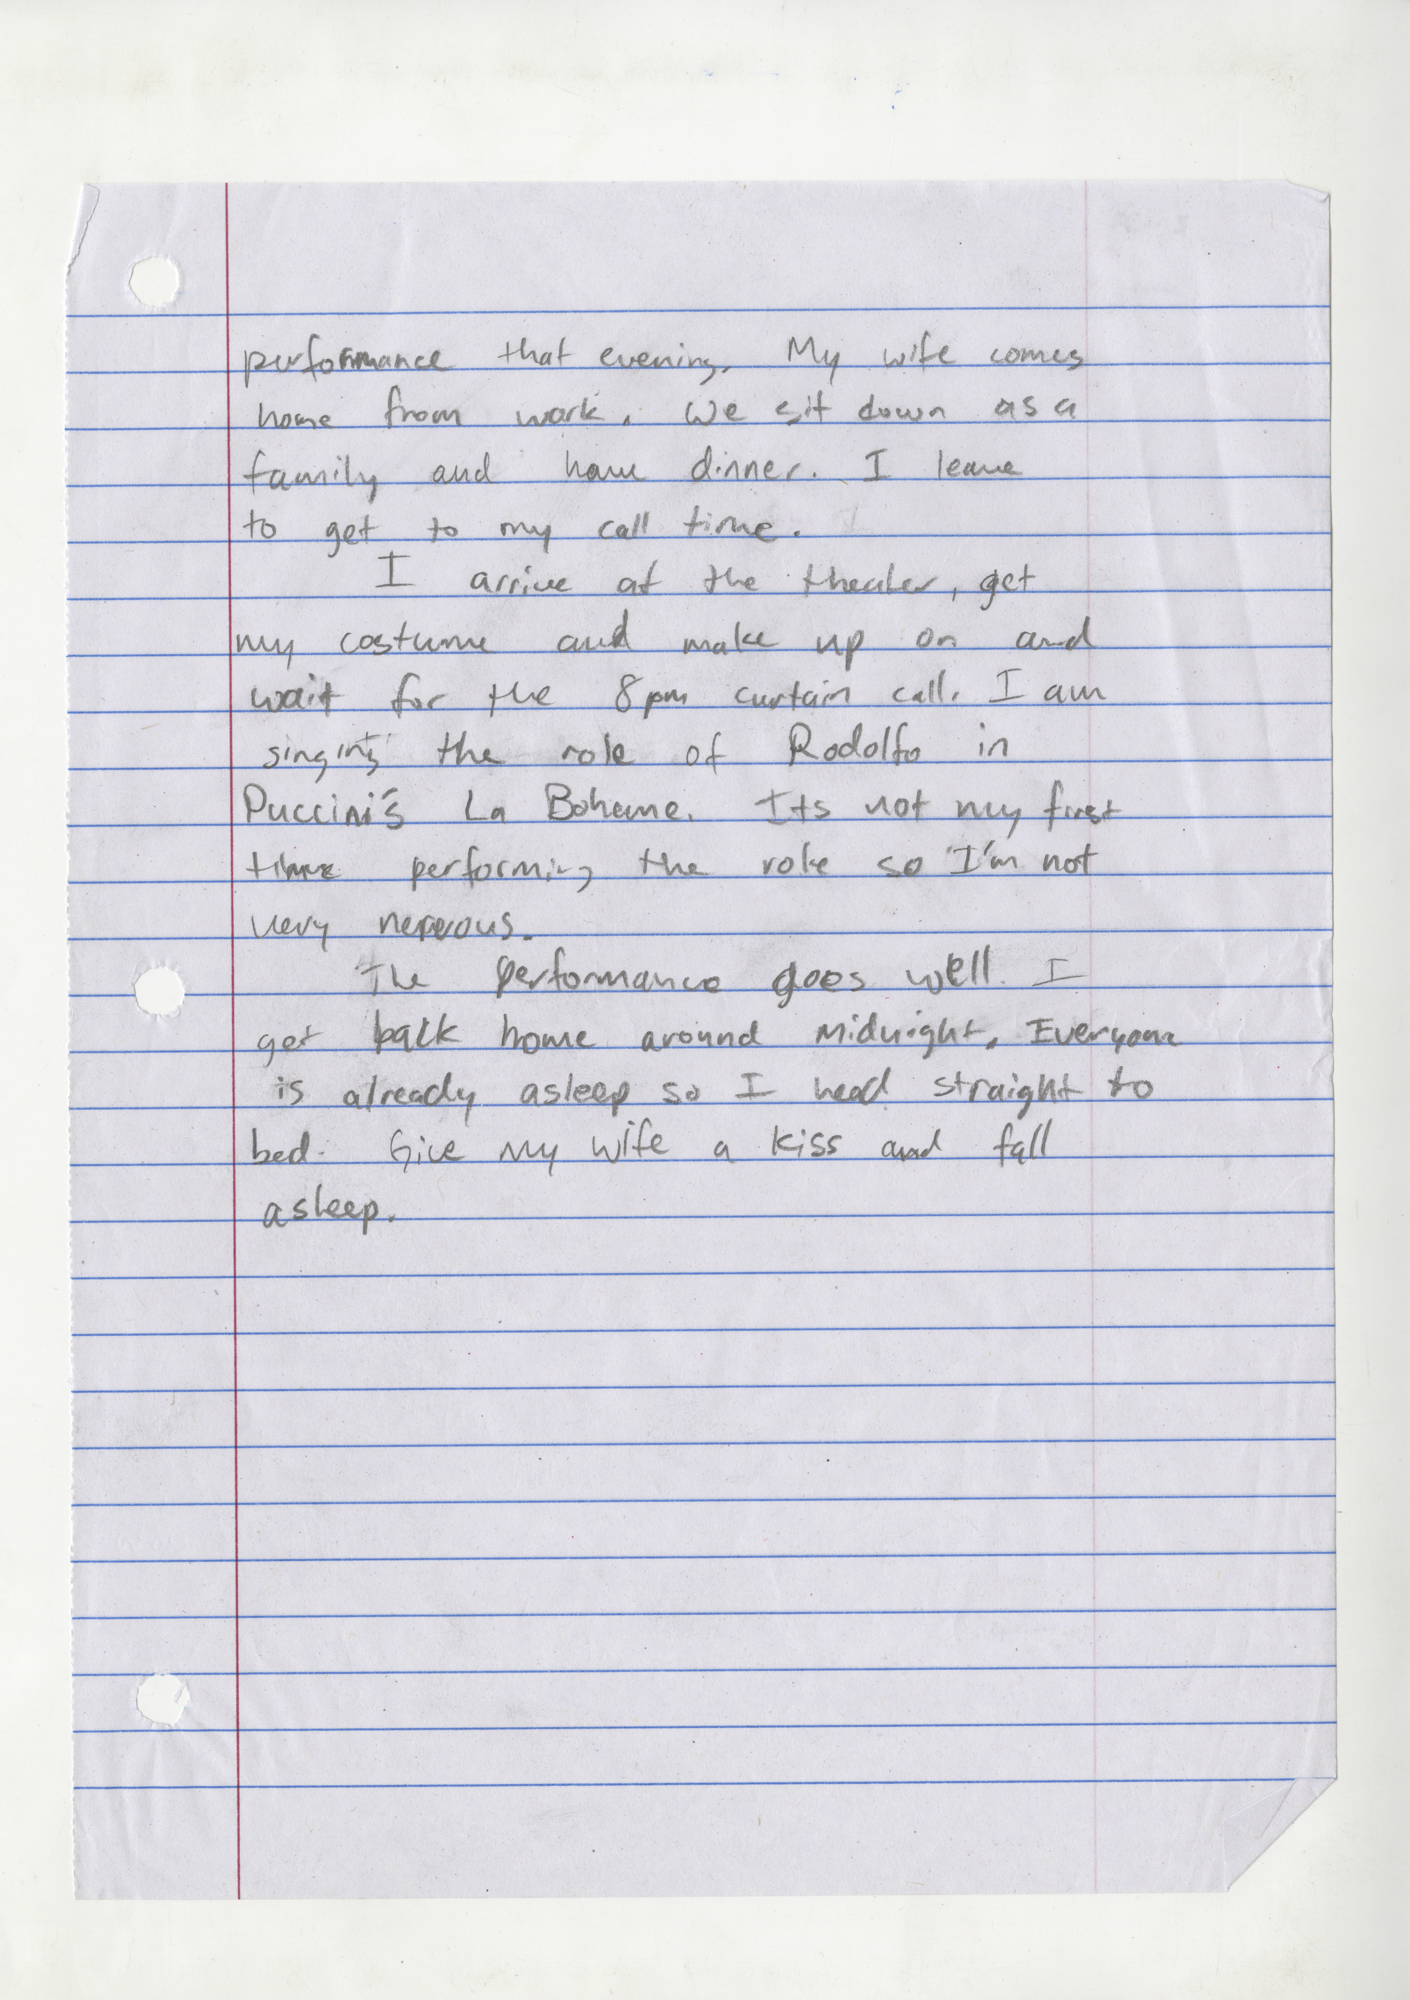 performance that evening. My wife comes
home from work. We sit down as a
family and have dinner. I leave
to get to my call time.
I arrive at the theater, get
my costume and make up on and
wait for the 8pm curtain call. I am
singing the role of Rodolfo in
Puccini's La Boheme. Its not my first
time performing the role so I'm not
very nervous.
The performance goes well. I
get back home around midnight. Everyone
is already asleep so I head straight to
bed. Give my wife a kiss and fall
asleep.